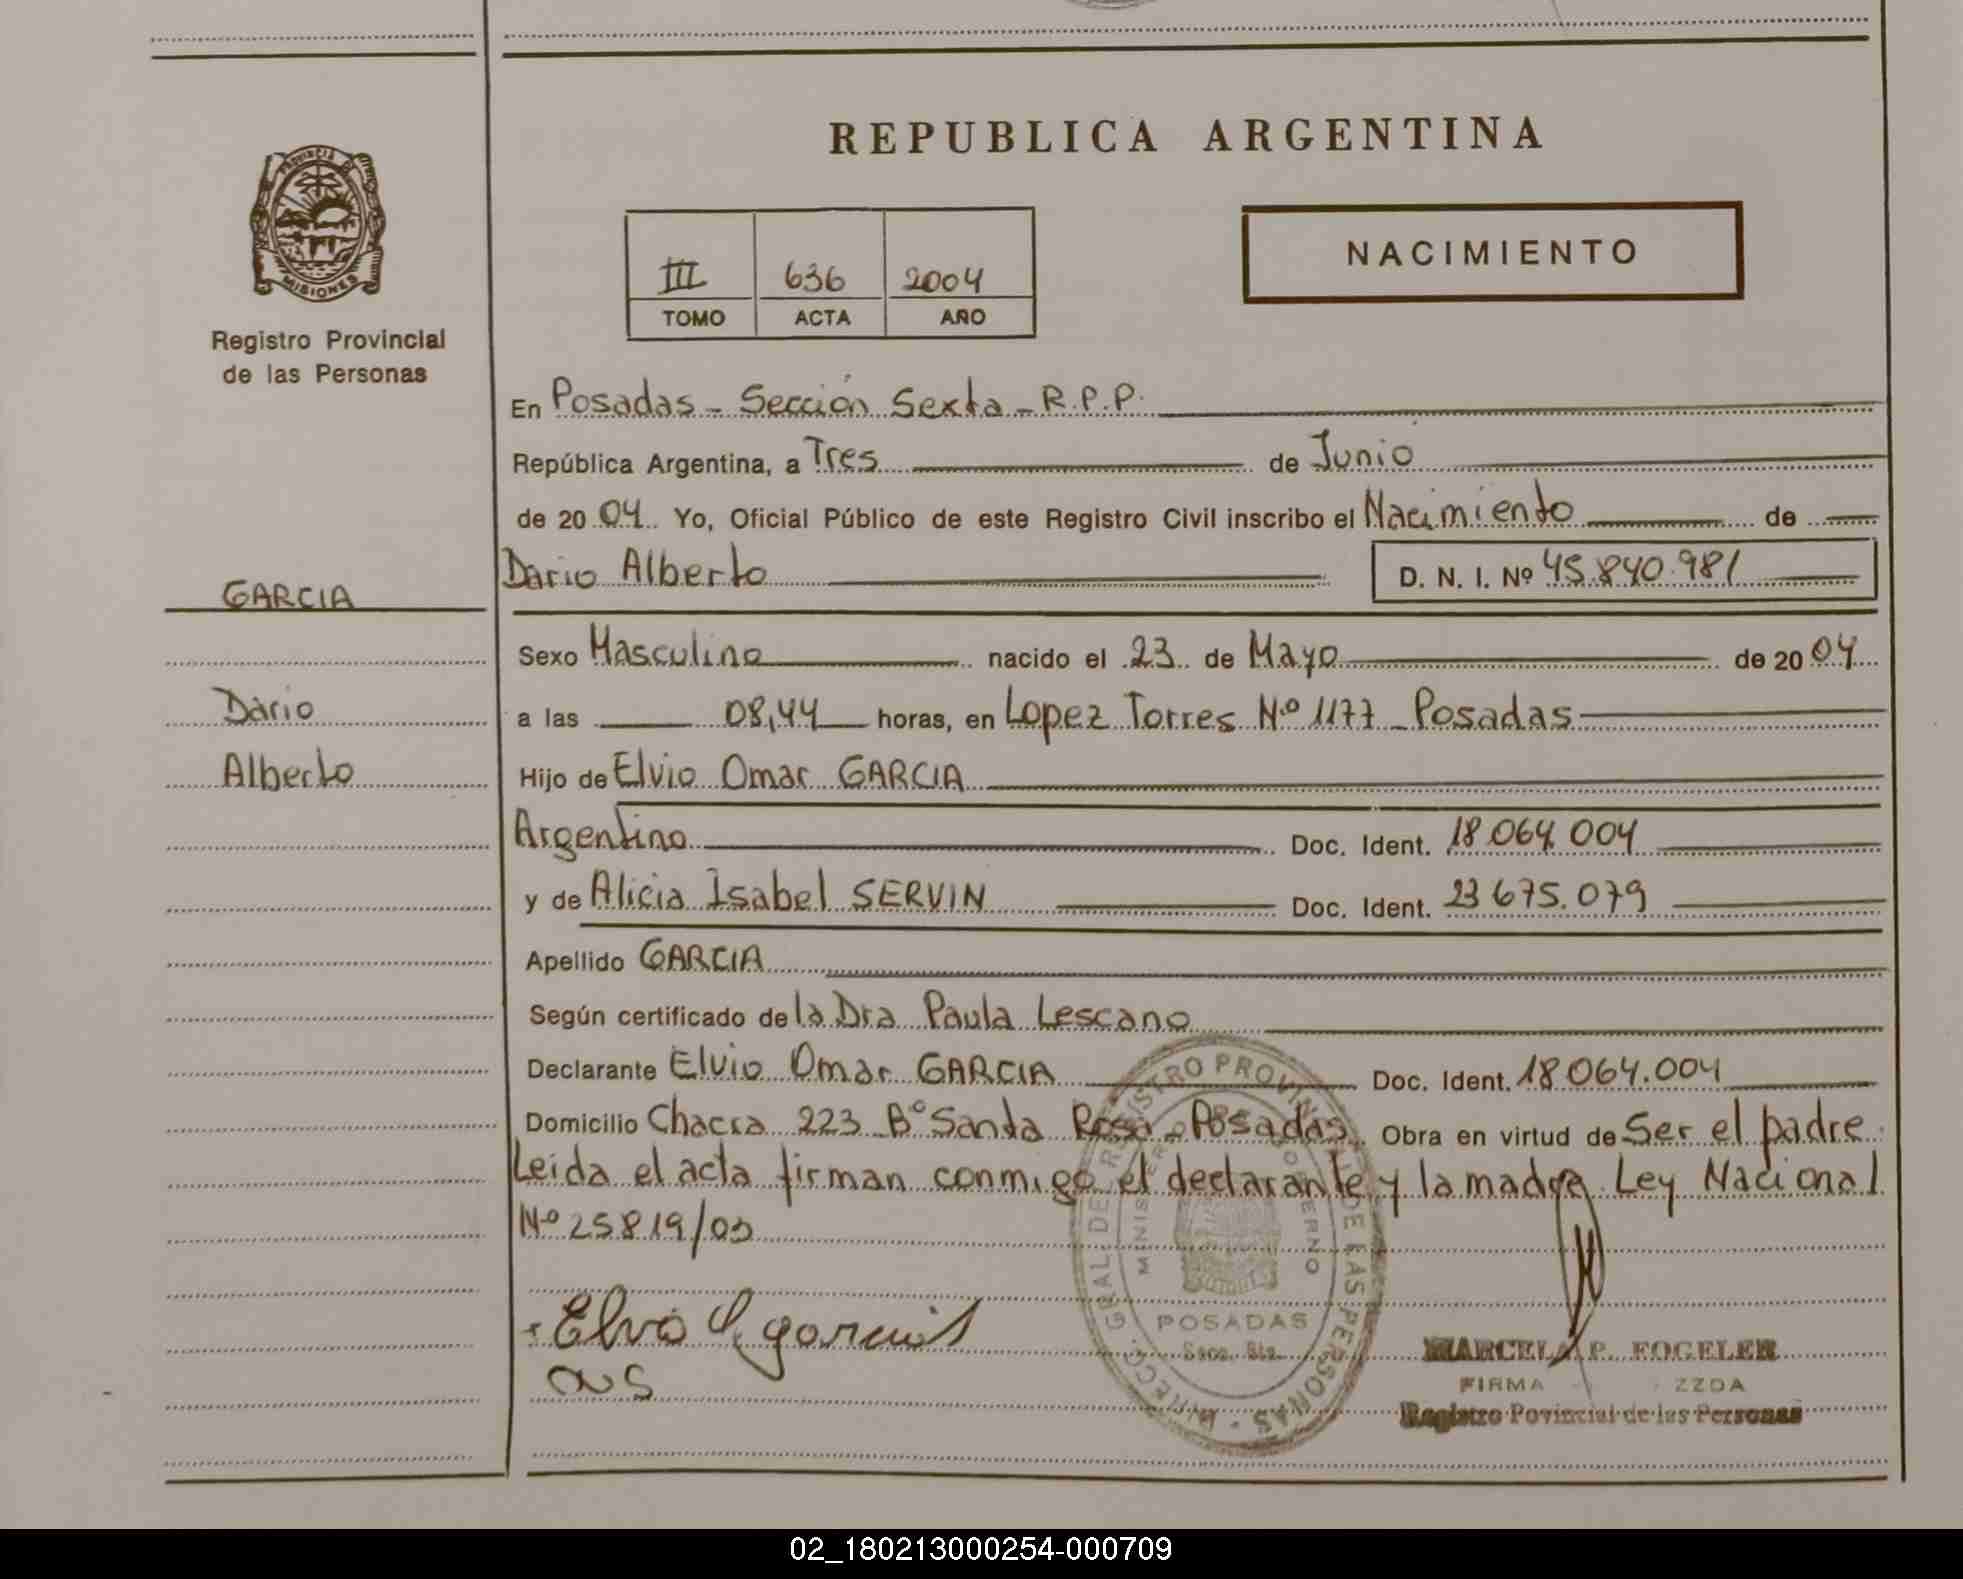 REPUBLICA ARGENTINA
PROVINCIA DE
MISIONES
Registro Provincial
de las Personas
NACIMIENTO
III 636 2004
TOMO ACTA AÑO
En Posadas - Sección Sexta - R.P.P.
República Argentina, a Tres de Junio
de 2004 Yo, Oficial Público de este Registro Civil inscribo el Nacimiento de
Dario Alberto D. N. I. Nº 45.840.981
GARCIA
Sexo Masculino nacido el 23 de Mayo de 2004
Dario
a las 08,44 horas, en Lopez Torres Nº 1177 - Posadas
Alberto
Hijo de Elvio Omar GARCIA
Argentino Doc. Ident. 18.064.004
y de Alicia Isabel SERVIN Doc. Ident. 23.675.079
Apellido GARCIA
Según certificado de la Dra Paula Lescano
Declarante Elvio Omar GARCIA Doc. Ident. 18.064.004
Domicilio Chacra 223 Bº Santa Rosa - Posadas Obra en virtud de Ser el padre.
Leida el acta firman conmigo el declarante y la madre. Ley Nacional
Nº 25819/03
DIRECC. GRAL DE REGISTRO PROVINCIAL DE LAS PERSONAS
MINISTERIO GOBIERNO
POSADAS
Secc. 6ta.
MARCELA P. FOGELER
FIRMA
Registro Povincial de las Personas
02_180213000254-000709